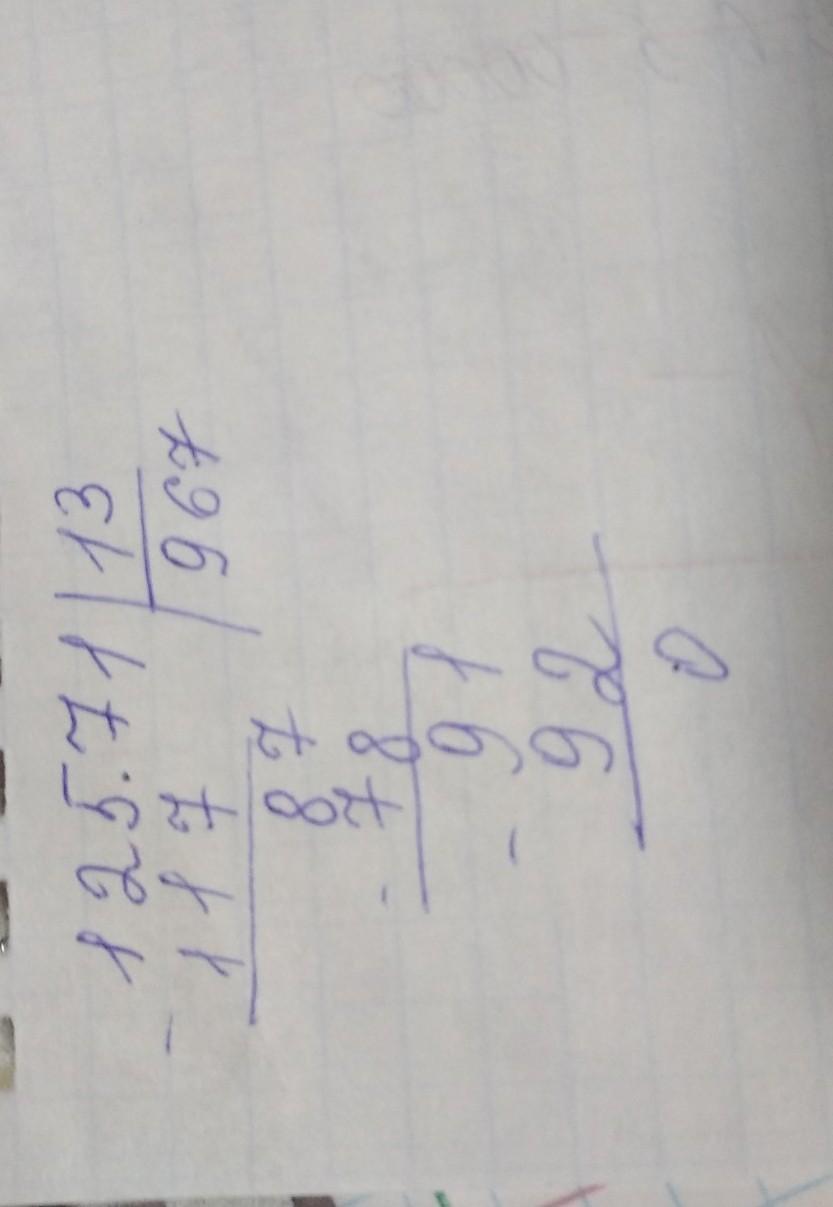 125.71 | 13
- 117 | 967
87
- 78
91
- 92
0